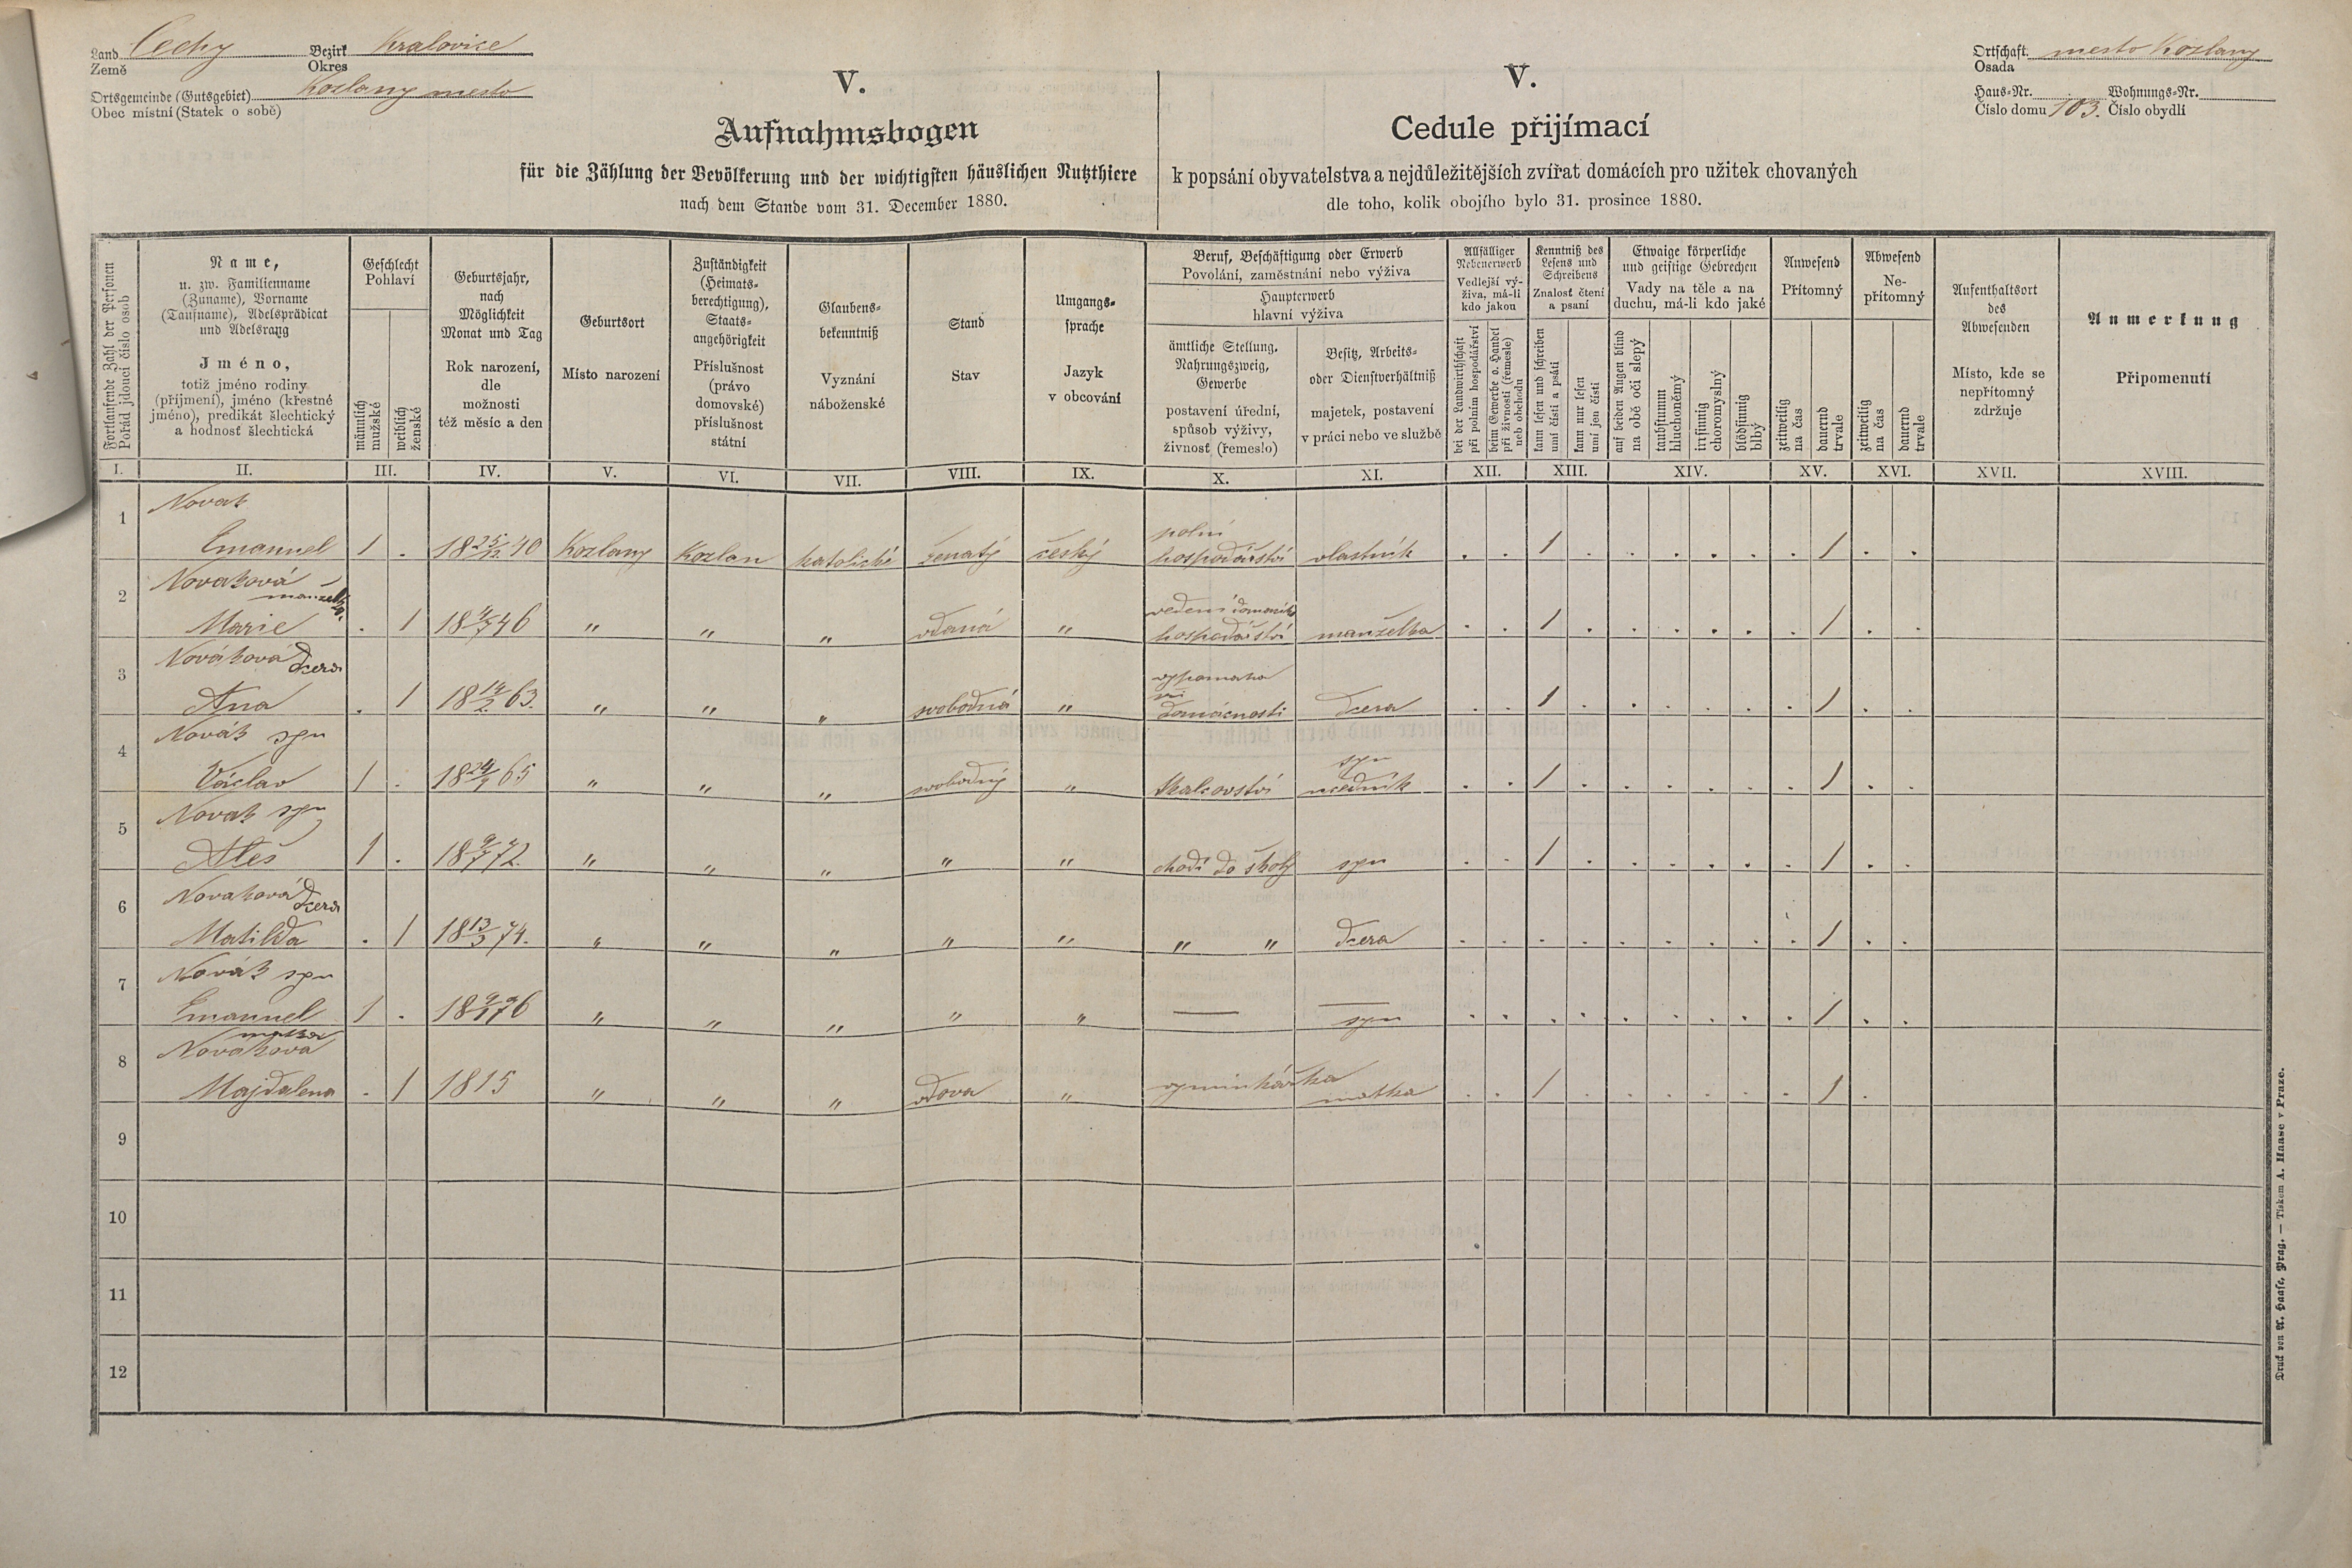 Land Čechy Bezirk Kralovice
Země Okres
Ortsgemeinde (Gutsgebiet) Kozlany mesto
Obec místní (Statek o sobě)
Ortschaft mesto Kozlany
Osada
Haus-Nr. Wohnungs-Nr.
Číslo domu 103. Číslo obydlí
V.
Aufnahmsbogen
für die Zählung der Bevölkerung und der wichtigsten häuslichen Nutzthiere
nach dem Stande vom 31. December 1880.
V.
Cedule přijímací
k popsání obyvatelstva a nejdůležitějších zvířat domácích pro užitek chovaných
dle toho, kolik obojího bylo 31. prosince 1880.
Fortlaufende Zahl der Personen
Pořád jdoucí číslo osob
Name,
u. zw. Familienname
(Zuname), Vorname
(Taufname), Adelsprädicat
und Adelsrang
Jméno,
totiž jméno rodiny
(příjmení), jméno (křestné
jméno), predikát šlechtický
a hodnosť šlechtická
Geschlecht
Pohlaví
männlich
mužské
weiblich
ženské
Geburtsjahr,
nach
Möglichkeit
Monat und Tag
Rok narození,
dle
možnosti
též měsíc a den
Geburtsort
Místo narození
Zuständigkeit
(Heimats-
berechtigung),
Staats-
angehörigkeit
Příslušnost
(právo
domovské)
příslušnost
státní
Glaubens-
bekenntniß
Vyznání
náboženské
Stand
Stav
Umgangs-
sprache
Jazyk
v obcování
Beruf, Beschäftigung oder Erwerb
Povolání, zaměstnání nebo výživa
Haupterwerb
hlavní výživa
ämtliche Stellung,
Nahrungszweig,
Gewerbe
postavení úřední,
spůsob výživy,
živnosť (řemeslo)
Besitz, Arbeits-
oder Dienstverhältniß
majetek, postavení
v práci nebo ve službě
Allfälliger
Nebenerwerb
Vedlejší vý-
živa, má-li
kdo jakou
bei der Landwirthschaft
při polním hospodářství
beim Gewerbe o. Handel
při živnosti (řemesle)
neb obchodu
Kenntniß des
Lesens und
Schreibens
Znalosť čtení
a psaní
kann lesen und schreiben
umí čísti a psáti
kann nur lesen
umí jen čísti
Etwaige körperliche
und geistige Gebrechen
Vady na těle a na
duchu, má-li kdo jaké
auf beiden Augen blind
na obě oči slepý
taubstumm
hluchoněmý
irrsinnig
choromyslný
blödsinnig
blbý
Anwesend
Přítomný
zeitweilig
na čas
dauernd
trvale
Abwesend
Ne-
přítomný
zeitweilig
na čas
dauernd
trvale
Aufenthaltsort
des
Abwesenden
Místo, kde se
nepřítomný
zdržuje
Anmerkung
Připomenutí
I. II. III. IV. V. VI. VII. VIII. IX. X. XI. XII. XIII. XIV. XV. XVI. XVII. XVIII.
1 Novak
Emanuel 1 . 18 25/12 40 Kozlany Kozlan katolické ženatý český polní hospodářství vlastník . . 1 . . . . . . 1 . .
2 Novaková – manzelka
Marie . 1 18 4/7 46 " " " vdaná " vedení domacího hospodářství manželka . . 1 . . . . . . 1 . .
3 Nováková dcera
Ana . 1 18 14/2 63. " " " svobodná " vypomaha při domácnosti dcera . . 1 . . . . . . 1 . .
4 Novák syn
Václav 1 . 18 24/9 65 " " " svobodný " tkalcovství syn učedník . . 1 . . . . . . 1 . .
5 Novak syn
Aleš 1 . 18 9/7 72. " " " " " chodí do školy syn . . 1 . . . . . . 1 . .
6 Novaková dcera
Matilda . 1 18 13/3 74. " " " " " " " dcera . . . . . . . . . 1 . .
7 Novák syn
Emanuel 1 . 18 9/1 76 " " " " " — — syn . . . . . . . . . 1 . .
8 matka
Novakova
Majdalena . 1 1815 " " " vdova " vyminkářka matka . . 1 . . . . . . 1 .
9
10
11
12
Druck von A. Haase, Prag. — Tiskem A. Haase v Praze.